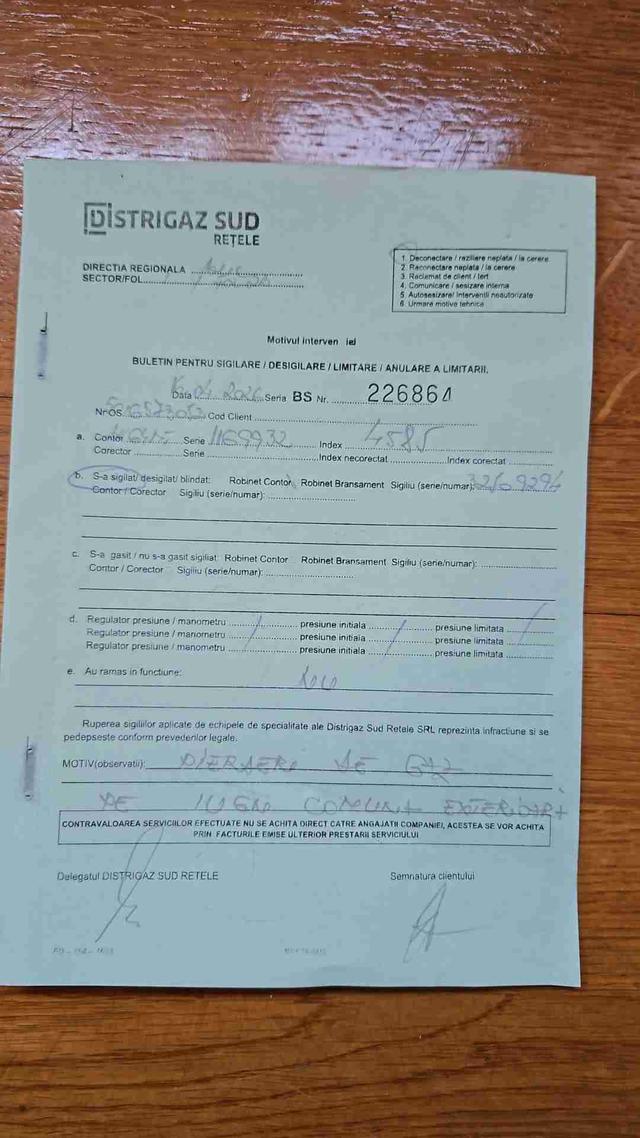 DISTRIGAZ SUD
REȚELE
DIRECTIA REGIONALA
SECTOR/FOL
1. Deconectare / reziliere neplata / la cerere
2. Reconectare neplata / la cerere
3. Reclamat de client / tert
4. Comunicare / sesizare interna
5. Autosesizare/ Interventii neautorizate
6. Urmare motive tehnice
Motivul interven iei
BULETIN PENTRU SIGILARE / DESIGILARE / LIMITARE / ANULARE A LIMITARII.
Data Seria BS Nr. 226864
Nr OS Cod Client
a. Contor Serie 1169932 Index 4585
Corector Serie Index necorectat Index corectat
b. S-a sigilat/ desigilat/ blindat: Robinet Contor Robinet Bransament Sigiliu (serie/numar):
Contor / Corector Sigiliu (serie/numar):
c. S-a gasit / nu s-a gasit sigiliat: Robinet Contor Robinet Bransament Sigiliu (serie/numar):
Contor / Corector Sigiliu (serie/numar):
d. Regulator presiune / manometru presiune initiala presiune limitata
Regulator presiune / manometru presiune initiala presiune limitata
Regulator presiune / manometru presiune initiala presiune limitata
e. Au ramas in functiune:
Ruperea sigiliilor aplicate de echipele de specialitate ale Distrigaz Sud Retele SRL reprezinta infractiune si se
pedepseste conform prevederilor legale.
MOTIV(observatii): PIERDERI DE GAZ
PE COMUNA EXTERIOARA
CONTRAVALOAREA SERVICIILOR EFECTUATE NU SE ACHITA DIRECT CATRE ANGAJATII COMPANIEI, ACESTEA SE VOR ACHITA
PRIN FACTURILE EMISE ULTERIOR PRESTARII SERVICIULUI
Delegatul DISTRIGAZ SUD RETELE Semnatura clientului